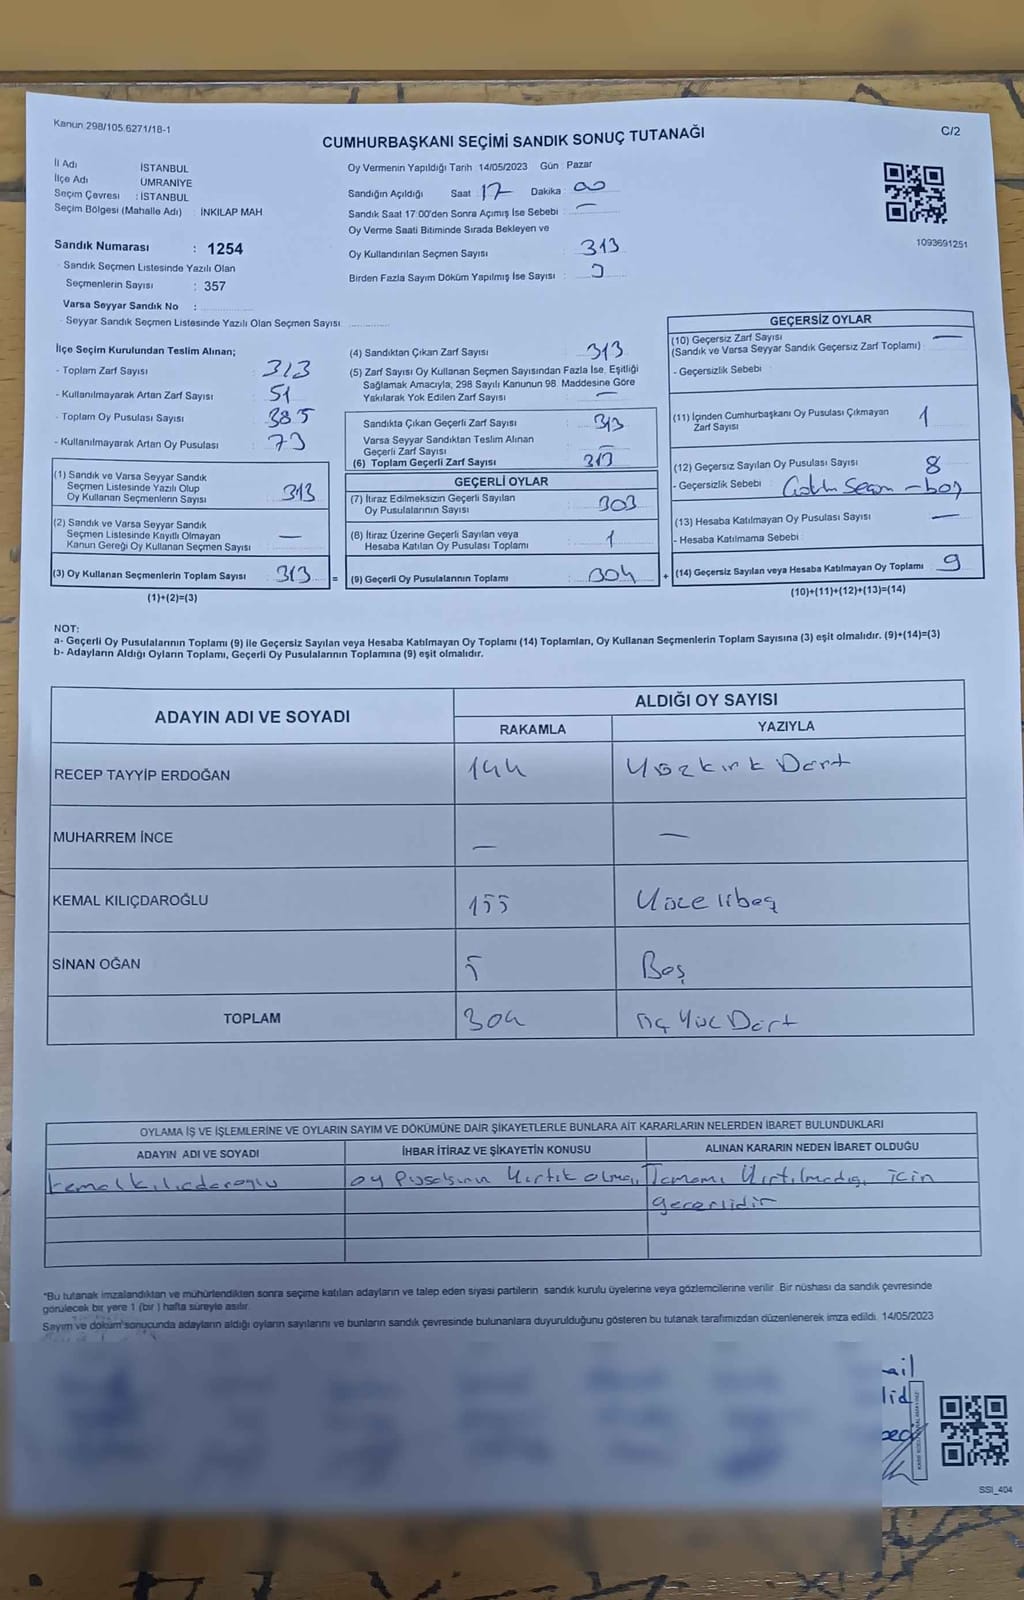 Kanun 298/105 6271/18-1
C/2
CUMHURBAŞKANI SEÇİMİ SANDIK SONUÇ TUTANAĞI
İl Adı İSTANBUL
İlçe Adı ÜMRANİYE
Seçim Çevresi : İSTANBUL
Seçim Bölgesi (Mahalle Adı) : İNKILAP MAH
Sandık Numarası : 1254
- Sandık Seçmen Listesinde Yazılı Olan
Seçmenlerin Sayısı : 357
Varsa Seyyar Sandık No :
- Seyyar Sandık Seçmen Listesinde Yazılı Olan Seçmen Sayısı
Oy Vermenin Yapıldığı Tarih 14/05/2023 Gün Pazar
Sandığın Açıldığı Saat 17 Dakika 00
Sandık Saat 17:00'den Sonra Açımış İse Sebebi : —
Oy Verme Saati Bitiminde Sırada Bekleyen ve
Oy Kullandırılan Seçmen Sayısı : 313
Birden Fazla Sayım Döküm Yapılmış İse Sayısı :
1093691251
İlçe Seçim Kurulundan Teslim Alınan;
- Toplam Zarf Sayısı : 313
- Kullanılmayarak Artan Zarf Sayısı : 51
- Toplam Oy Pusulası Sayısı : 385
- Kullanılmayarak Artan Oy Pusulası : 73
(1) Sandık ve Varsa Seyyar Sandık
Seçmen Listesinde Yazılı Olup
Oy Kullanan Seçmenlerin Sayısı : 313
(2) Sandık ve Varsa Seyyar Sandık
Seçmen Listesinde Kayıtlı Olmayan
Kanun Gereği Oy Kullanan Seçmen Sayısı : —
(3) Oy Kullanan Seçmenlerin Toplam Sayısı : 313 =
(1)+(2)=(3)
(4) Sandıktan Çıkan Zarf Sayısı : 313
(5) Zarf Sayısı Oy Kullanan Seçmen Sayısından Fazla İse, Eşitliği
Sağlamak Amacıyla, 298 Sayılı Kanunun 98. Maddesine Göre
Yakılarak Yok Edilen Zarf Sayısı : —
Sandıkta Çıkan Geçerli Zarf Sayısı : 313
Varsa Seyyar Sandıktan Teslim Alınan
Geçerli Zarf Sayısı : —
(6) Toplam Geçerli Zarf Sayısı : 313
GEÇERLİ OYLAR
(7) İtiraz Edilmeksizin Geçerli Sayılan
Oy Pusulalarının Sayısı : 303
(8) İtiraz Üzerine Geçerli Sayılan veya
Hesaba Katılan Oy Pusulası Toplamı : 1
(9) Geçerli Oy Pusulalarının Toplamı : 304 +
GEÇERSİZ OYLAR
(10) Geçersiz Zarf Sayısı : —
(Sandık ve Varsa Seyyar Sandık Geçersiz Zarf Toplamı)
- Geçersizlik Sebebi :
(11) İçinden Cumhurbaşkanı Oy Pusulası Çıkmayan
Zarf Sayısı : 1
(12) Geçersiz Sayılan Oy Pusulası Sayısı : 8
- Geçersizlik Sebebi :
(13) Hesaba Katılmayan Oy Pusulası Sayısı : —
- Hesaba Katılmama Sebebi :
(14) Geçersiz Sayılan veya Hesaba Katılmayan Oy Toplamı : 9
(10)+(11)+(12)+(13)=(14)
NOT:
a- Geçerli Oy Pusulalarının Toplamı (9) ile Geçersiz Sayılan veya Hesaba Katılmayan Oy Toplamı (14) Toplamları, Oy Kullanan Seçmenlerin Toplam Sayısına (3) eşit olmalıdır. (9)+(14)=(3)
b- Adayların Aldığı Oyların Toplamı, Geçerli Oy Pusulalarının Toplamına (9) eşit olmalıdır.
ADAYIN ADI VE SOYADI ALDIĞI OY SAYISI
RAKAMLA YAZIYLA
RECEP TAYYİP ERDOĞAN 144 Yüzkırk Dört
MUHARREM İNCE — —
KEMAL KILIÇDAROĞLU 155 Yüzellibeş
SİNAN OĞAN 5 Beş
TOPLAM 304 Üç Yüz Dört
OYLAMA İŞ VE İŞLEMLERİNE VE OYLARIN SAYIM VE DÖKÜMÜNE DAİR ŞİKAYETLERLE BUNLARA AİT KARARLARIN NELERDEN İBARET BULUNDUKLARI
ADAYIN ADI VE SOYADI İHBAR İTİRAZ VE ŞİKAYETİN KONUSU ALINAN KARARIN NEDEN İBARET OLDUĞU
kemal kılıçdaroğlu oy Pusulsının Yırtık olması Tamamı Yırtılmadığı için
geçerlidir
*Bu tutanak imzalandıktan ve mühürlendikten sonra seçime katılan adayların ve talep eden siyasi partilerin sandık kurulu üyelerine veya gözlemcilerine verilir. Bir nüshası da sandık çevresinde
görülecek bir yere 1 (bir ) hafta süreyle asılır.
Sayım ve döküm sonucunda adayların aldığı oyların sayılarını ve bunların sandık çevresinde bulunanlara duyurulduğunu gösteren bu tutanak tarafımızdan düzenlenerek imza edildi. 14/05/2023
SSI_404